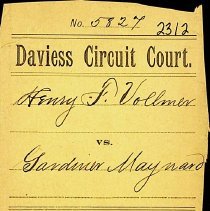 No. 5827 2312
Daviess Circuit Court.
Henry F. Vollmer
vs.
Gardiner Maynard